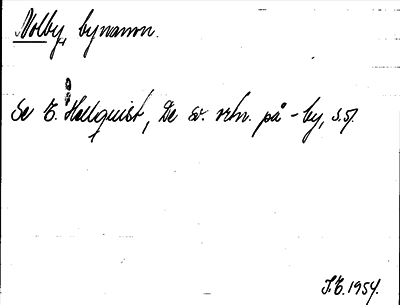 Nolby, bynamn.
Se E. Hellquist, De sv. ortn. på -by, s. 51.
I.E. 1954.